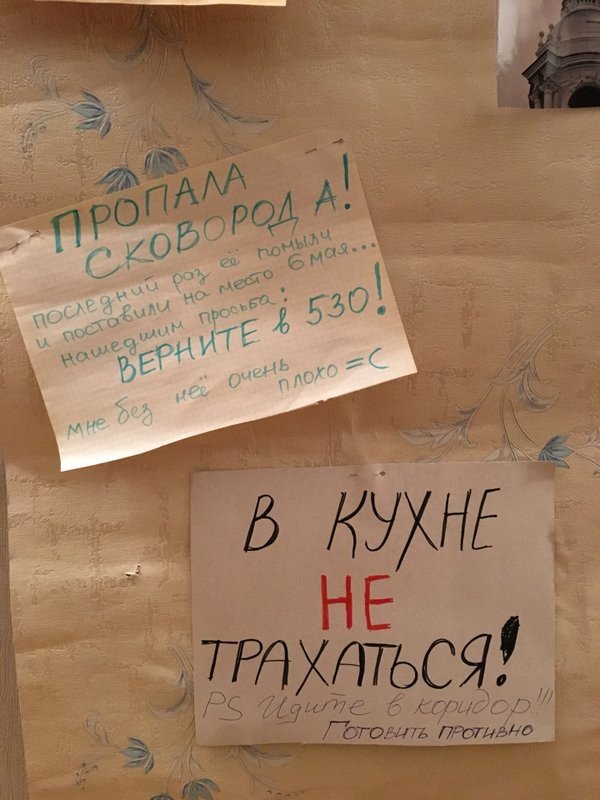 ПРОПАЛА
СКОВОРОДА!
последний раз её помыли
и поставили на место 6 мая...
нашедшим просьба:
ВЕРНИТЕ в 530!
мне без неё очень
плохо =C
В КУХНЕ
НЕ
ТРАХАТЬСЯ!
PS Идите в коридор!!!
Готовить противно